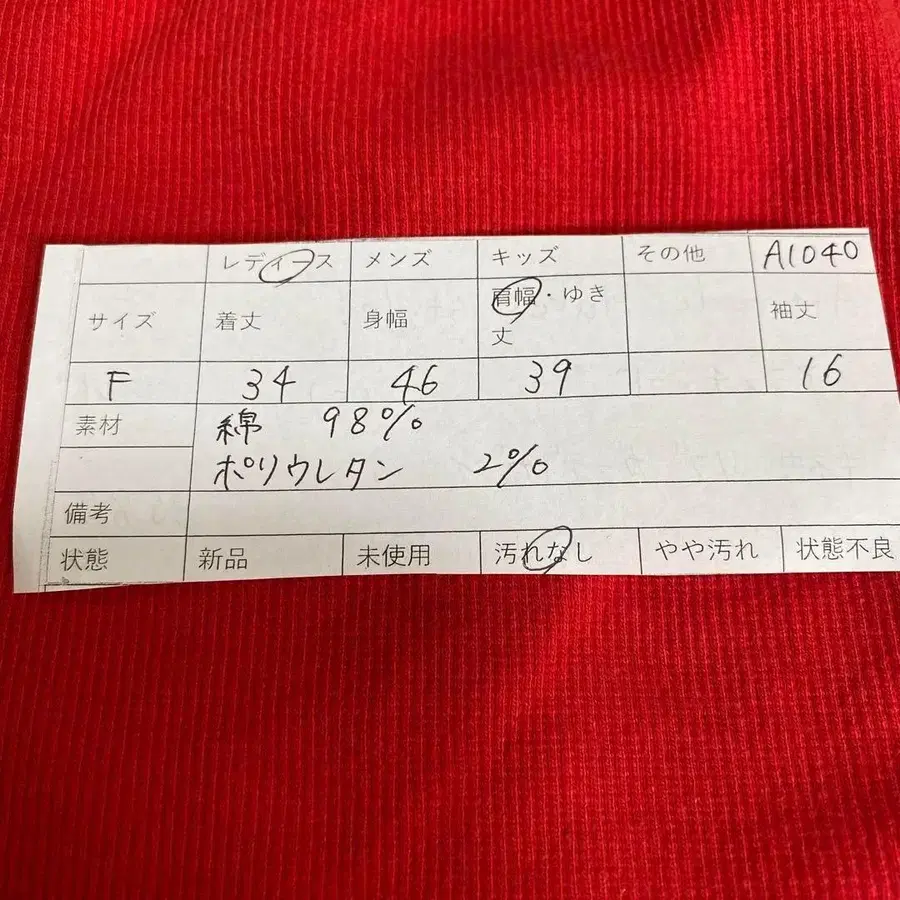 レディース メンズ キッズ その他 A1040
サイズ 着丈 身幅 肩幅・ゆき丈 袖丈
F 34 46 39 16
素材 綿 98%
ポリウレタン 2%
備考
状態 新品 未使用 汚れなし やや汚れ 状態不良